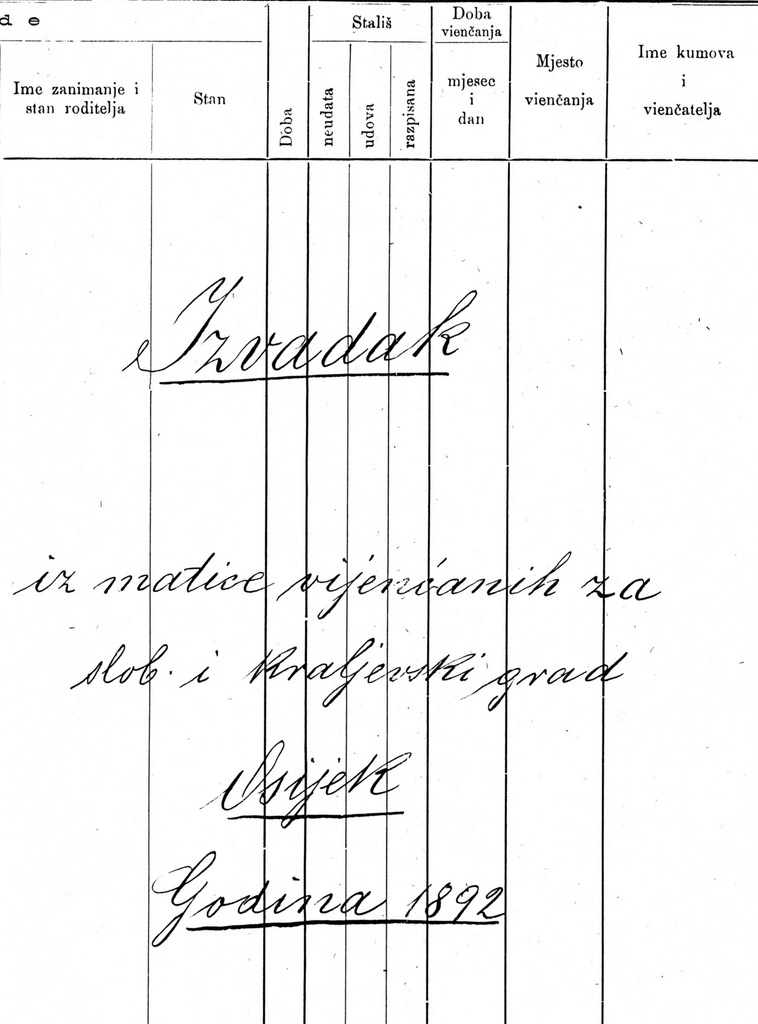 d e
Stališ
Doba
vienčanja
Ime zanimanje i
stan roditelja
Stan
Doba
neudata
udova
razpisana
mjesec
i
dan
Mjesto
vienčanja
Ime kumova
i
vienčatelja
Izvadak
iz matice vijenčanih za
slob. i kraljevski grad
Osijek
Godina 1892